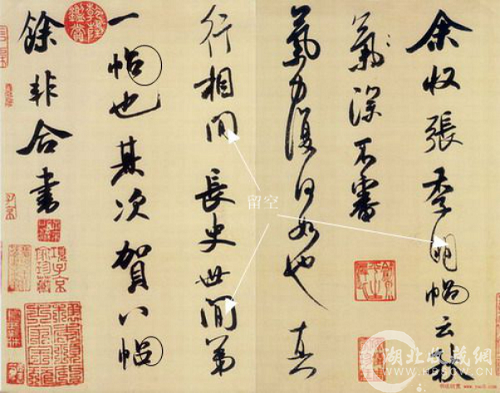 余收張季明帖云秋
氣深不審
氣力復何如也真
行相間長史世間第
一帖也其次賀八帖
餘非合書
留空
湖北收藏网